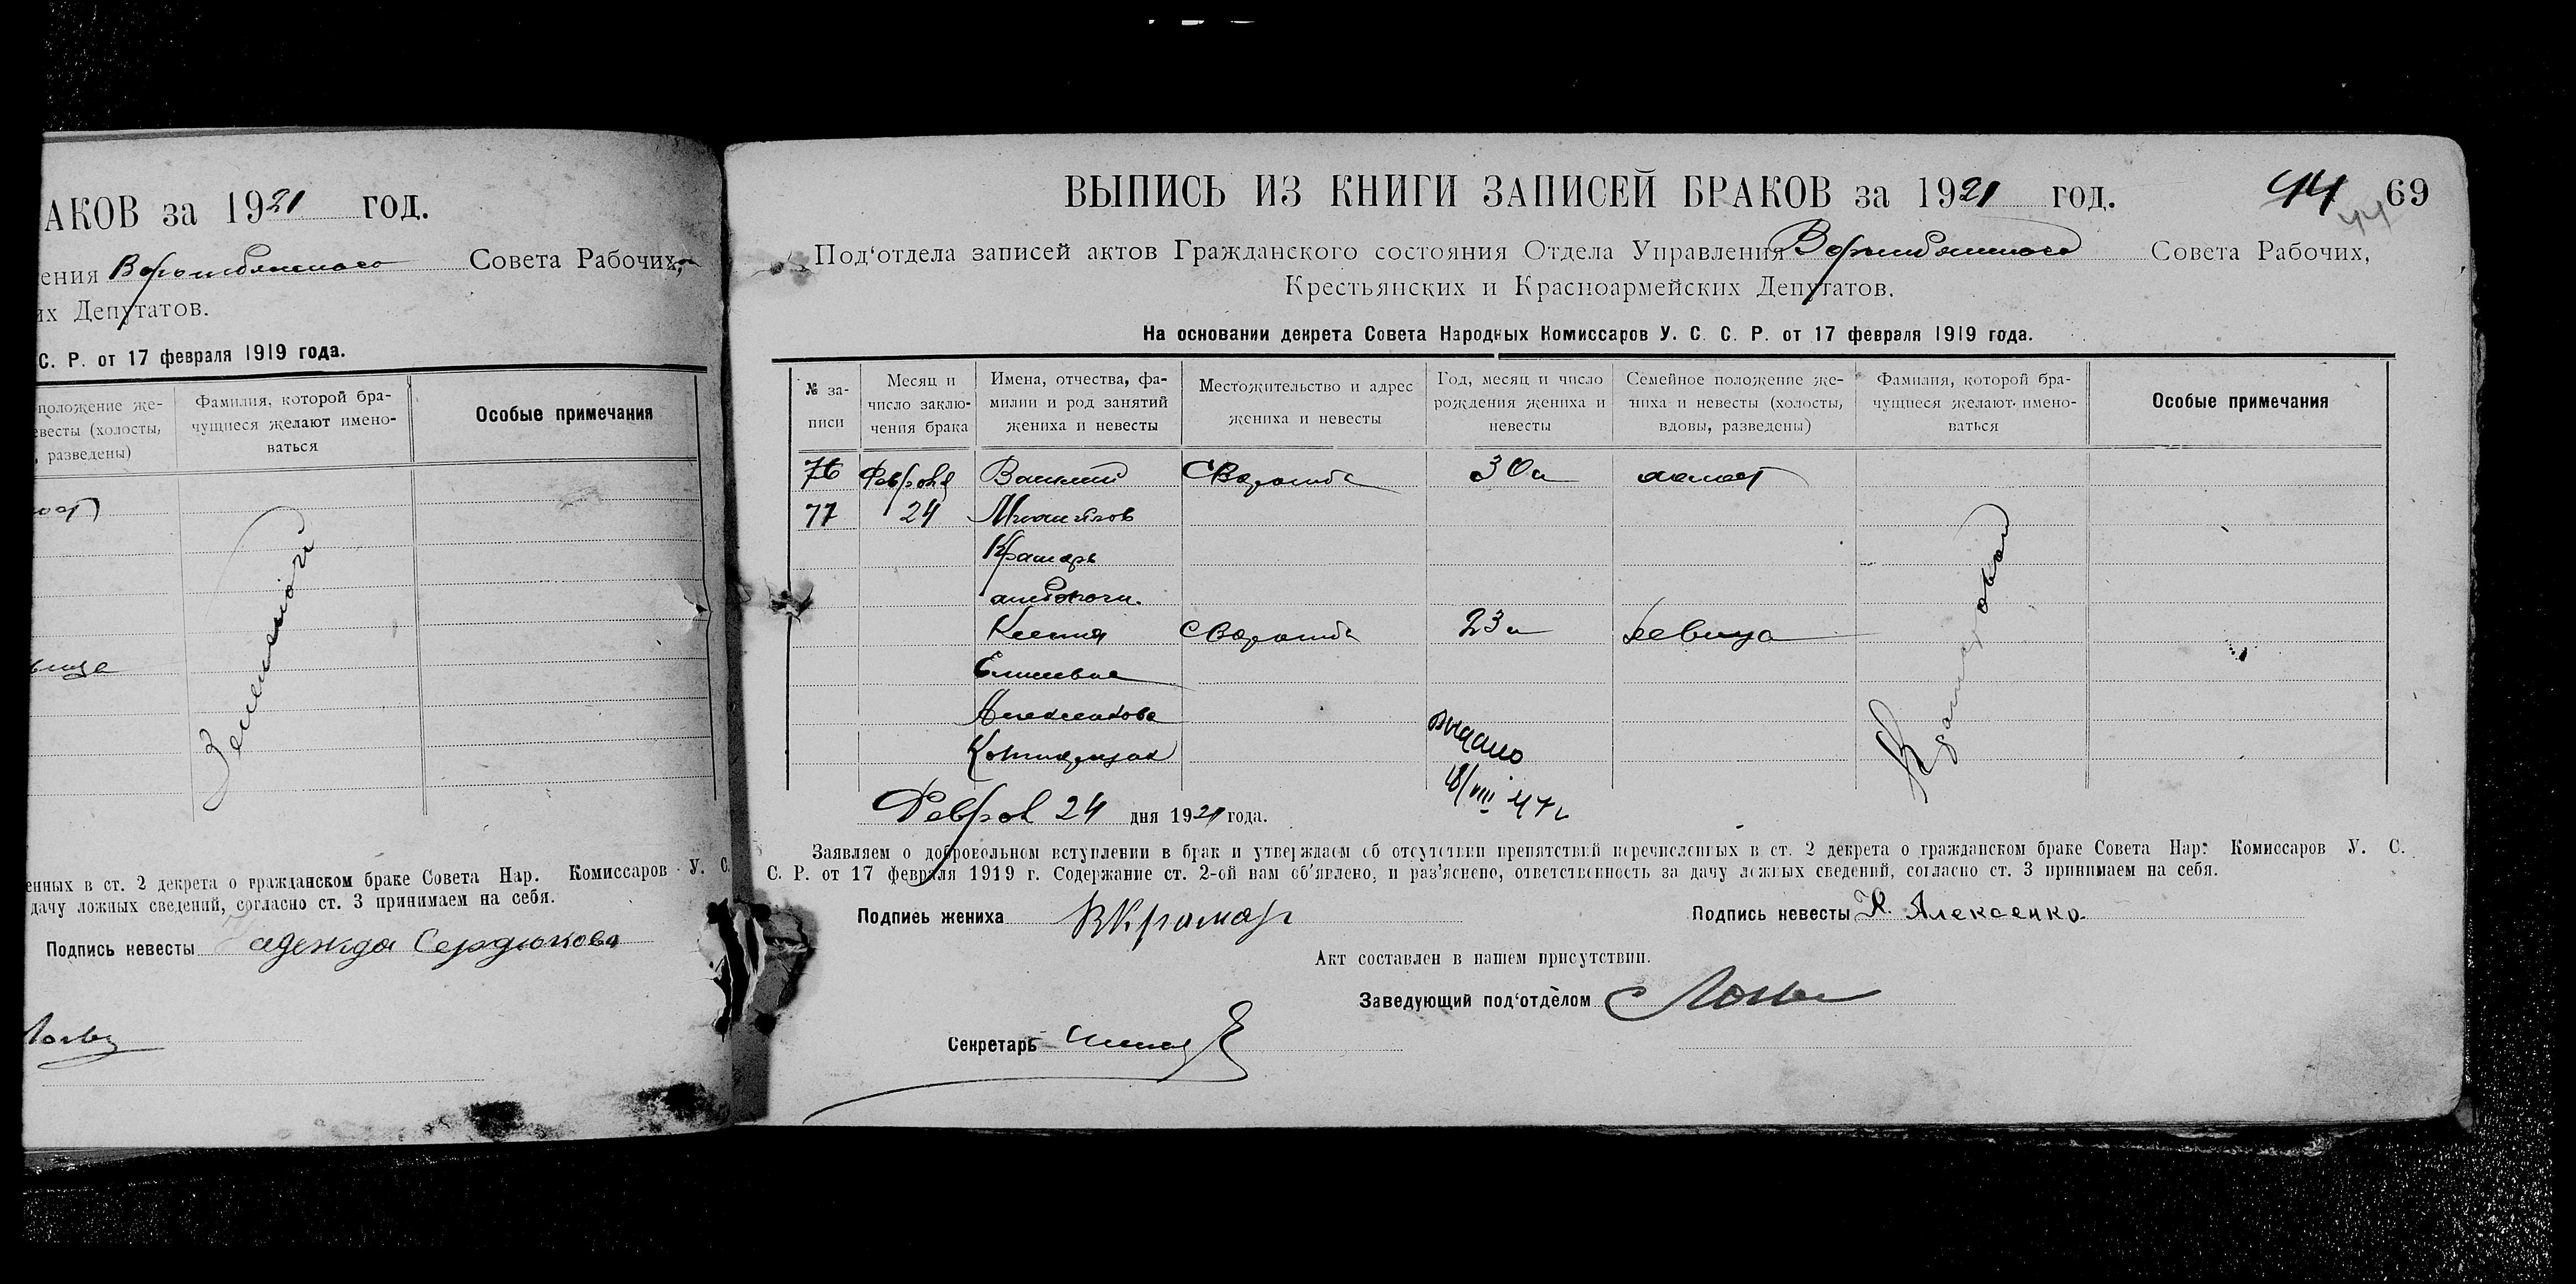 АКОВ за 1921 год.
ения Ворожбянского Совета Рабочих,
их Депутатов.
С. Р. от 17 февраля 1919 года.
положение же-
евесты (холосты,
, разведены)
Фамилия, которой бра-
чущиеся желают имено-
ваться
Особые примечания
вица
енных в ст. 2 декрета о гражданском браке Совета Нар. Комиссаров У. С.
дачу ложных сведений, согласно ст. 3 принимаем на себя.
Подпись невесты Надежда Сердюкова
ВЫПИСЬ ИЗ КНИГИ ЗАПИСЕЙ БРАКОВ за 1921 год.
44 69
44
Под‘отдела записей актов Гражданского состояния Отдела Управления Ворожбянского Совета Рабочих,
Крестьянских и Красноармейских Депутатов.
На основании декрета Совета Народных Комиссаров У. С. С. Р. от 17 февраля 1919 года.
№ за-
писи
Месяц и
число заклю-
чения брака
Имена, отчества, фа-
милии и род занятий
жениха и невесты
Местожительство и адрес
жениха и невесты
Год, месяц и число
рождения жениха и
невесты
Семейное положение же-
ниха и невесты (холосты,
вдовы, разведены)
Фамилия, которой бра-
чущиеся желают имено-
ваться
Особые примечания
76 Февраля Василий С Ворожба 30 л холост
77 24 Михайлов
Крамарь
Ксения С Ворожба 23 л девица
Елисеевна
Алексенкова
Крамаровой
выдано
18/VIII 47 г
Феврал 24 дня 1921 года.
Заявляем о добровольном вступлении в брак и утверждаем об отсутствии препятствий перечисленных в ст. 2 декрета о гражданском браке Совета Нар. Комиссаров У. С.
С. Р. от 17 февраля 1919 г. Содержание ст. 2-ой нам об‘явлено, и раз‘яснено, ответственность за дачу ложных сведений, согласно ст. 3 принимаем на себя.
Подпись жениха ВКрамар Подпись невесты К. Алексенко
Акт составлен в нашем присутствии.
Заведующий под‘отделом
Секретарь